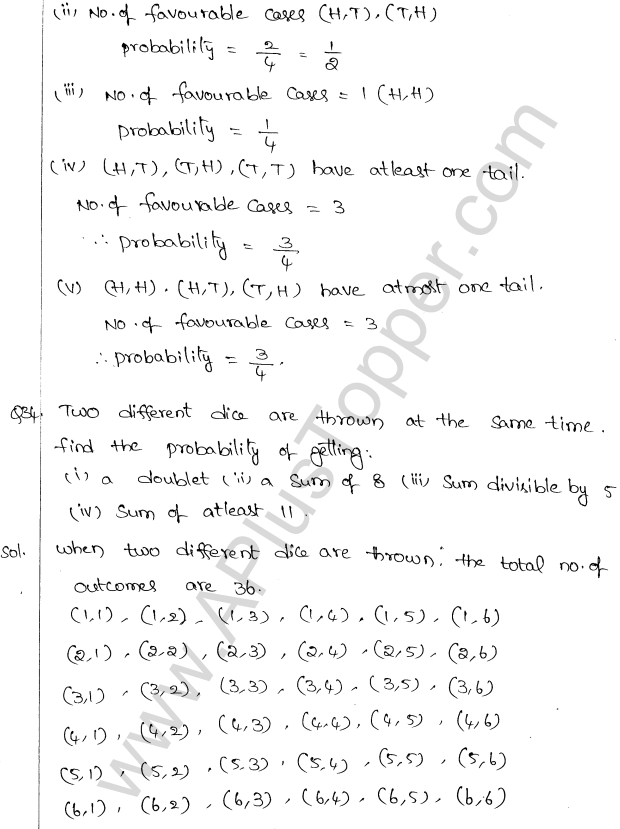 (ii) No. of favourable cases (H,T), (T,H)
probability = 2/4 = 1/2
(iii) No. of favourable cases = 1 (H,H)
probability = 1/4
(iv) (H,T), (T,H), (T,T) have atleast one tail.
No. of favourable cases = 3
∴ probability = 3/4
(v) (H,H), (H,T), (T,H) have atmost one tail.
No. of favourable cases = 3
∴ probability = 3/4.
Q34. Two different dice are thrown at the same time.
find the probability of getting:
(i) a doublet (ii) a sum of 8 (iii) sum divisible by 5
(iv) sum of atleast 11.
Sol. when two different dice are thrown: the total no. of
outcomes are 36.
(1,1), (1,2), (1,3), (1,4), (1,5), (1,6)
(2,1), (2,2), (2,3), (2,4), (2,5), (2,6)
(3,1), (3,2), (3,3), (3,4), (3,5), (3,6)
(4,1), (4,2), (4,3), (4,4), (4,5), (4,6)
(5,1), (5,2), (5,3), (5,4), (5,5), (5,6)
(6,1), (6,2), (6,3), (6,4), (6,5), (6,6)
www.APlusTopper.com